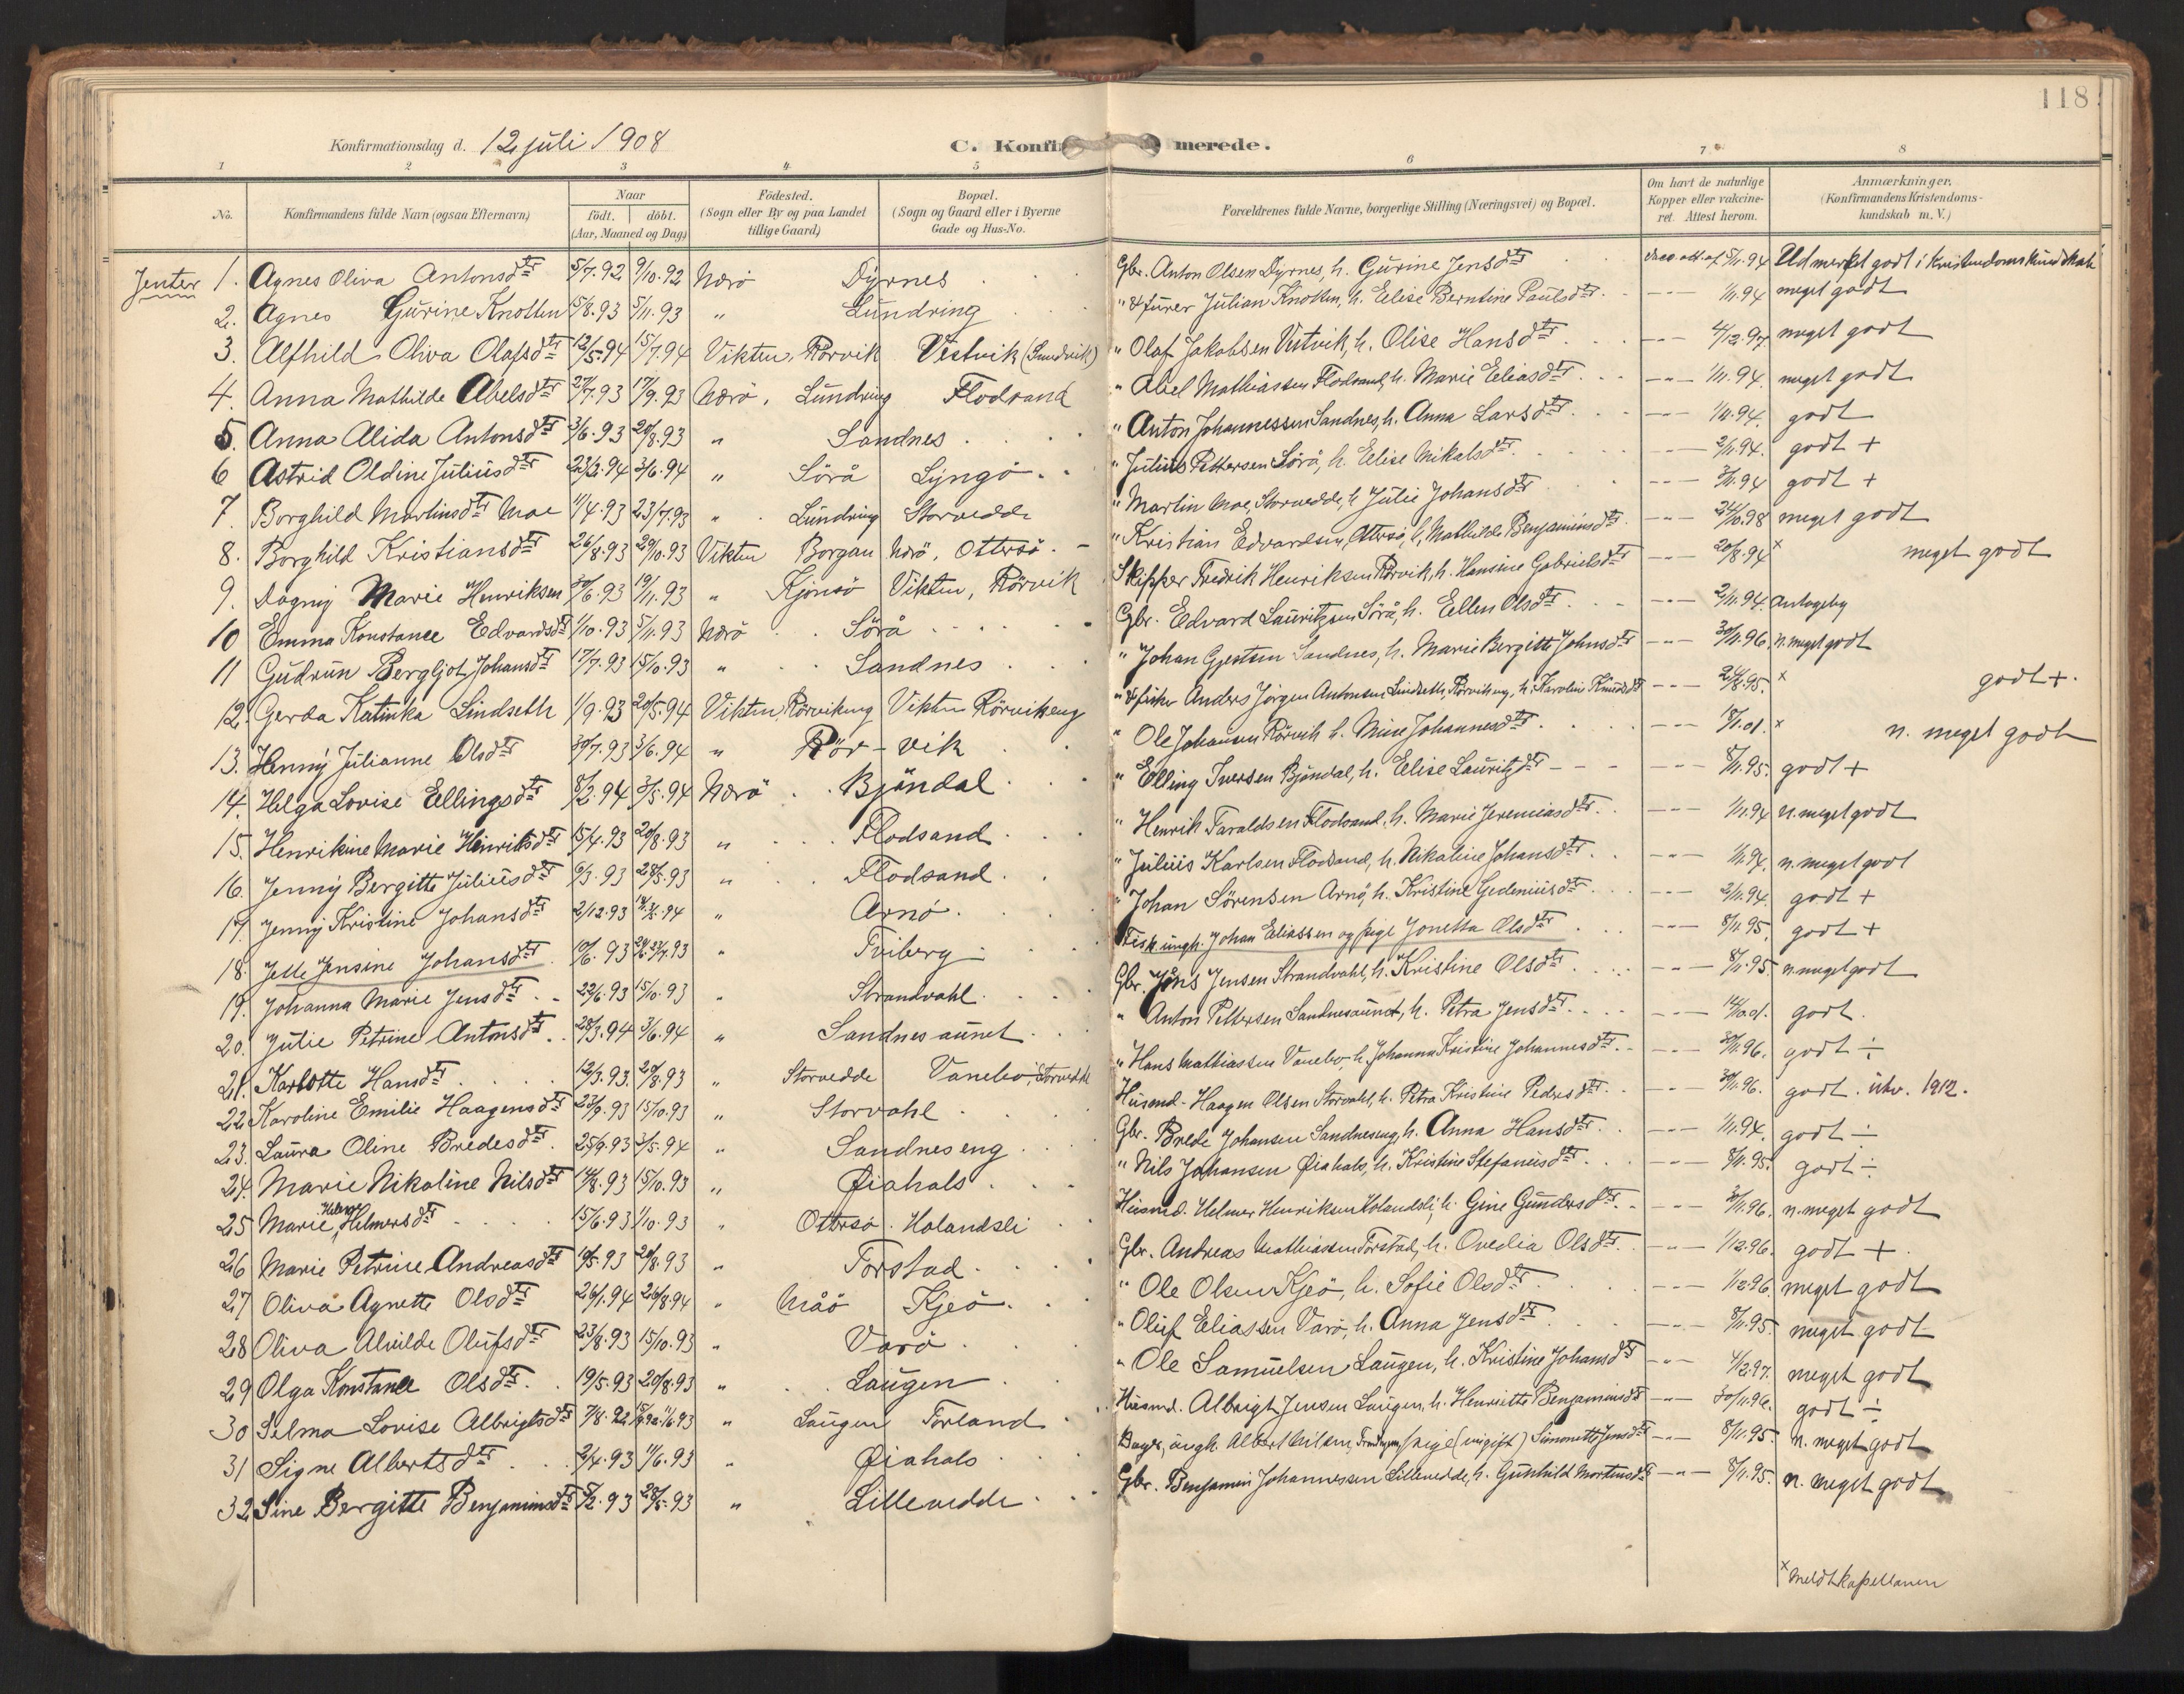 118
Konfirmationsdag d. 12 juli 1908 C. Konfirmerede.
1 2 3 4 5 6 7 8
No. Konfirmandens fulde Navn (ogsaa Efternavn) Naar födt. döbt. (Aar, Maaned og Dag) Födested. (Sogn eller By og paa Landet tillige Gaard) Bopæl. (Sogn og Gaard eller i Byerne Gade og Hus-No. Forældrenes fulde Navne, borgerlige Stilling (Næringsvei) og Bopæl. Om havt de naturlige Kopper eller vakcineret. Attest herom. Anmærkninger. (Konfirmandens Kristendomskundskab m. V.)
Jenter 1. Agnes Oliva Antonsdtr 5/7.92 9/10.92 Nærö Dyrnes Gbr. Anton Olsen Dyrnes, h. Gurine Jensdtr 5/11.94 Udmerket godt i Kristendomskundskab
2. Agnes Gurine Knotten 15/8.93 5/11.93 " Lundring Julian Knotten, h. Elise Berntine Paulsdtr 1/11.94 meget godt
3. Alfhild Oliva Olafsdtr 12/5.94 15/7.94 Vikten, Rörvik Vestvik (Sundvik) " Olaf Jakobsen Vestvik, h. Olise Hansdtr 4/12.97 meget godt
4. Anna Mathilde Abelsdtr 27/7.93 17/9.93 Nærö, Lundring Flodsand " Abel Mathiassen Flodsand, h. Marie Eliasdtr 1/11.94. meget godt
5. Anna Alida Antonsdtr 3/6.93 20/8.93 " Sandnes " Anton Johannessen Sandnes, h. Anna Larsdtr 1/11.94. godt
6 Astrid Oldine Juliusdtr 23/2.94 3/6.94 " Sörå Lyngö " Julius Pettersen Sörå, h. Elise Mikalsdtr 2/11.94. godt +
7. Borghild Martinsdtr Moe 11/4.93 23/7.93 " Lundring Storvedde " Martin Moe, Storvedde, h. Julie Johansdtr 3/11.94 godt +
8. Borghild Kristiansdtr 26/8.93 29/10.93 Vikten Borgan Nærö, Ottersö " Kristian Edvardsen, Ottersö, h. Mathilde Benjaminsdtr 24/10.98 meget godt
9. Dagny Marie Henriksen 30/6.93 19/11.93 " Kjönsö Vikten, Rörvik Skipper Fredrik Henriksen Rörvik, h. Hansine Gabrielsdtr 20/8.94 x meget godt
10 Emma Konstance Edvardsdtr 1/10.93 5/11.93 Nærö Sörå Gbr. Edvard Lauritzsen Sörå, h. Ellen Olsdtr 2/11.94. Antagelig
11 Gudrun Bergljot Johansdtr 17/7.93 15/10.93 " Sandnes " Johan Gjertsen Sandnes, h. Marie Bergitte Johnsdtr 30/11.96. n. meget godt
12. Gerda Katinka Lindseth 1/9.93 20/5.94 Vikten, Rörvikeng Vikten Rörvikeng " Anders Jörgen Antonsen Lindseth, Rörvikeng, h. Karolin Knudsdtr 24/8.95. x godt +.
13. Henny Julianne Olsdtr 30/7.93 3/6.94 " Rör-vik " Ole Johansen Rörvik h. Mine Johannesdtr 18/1.01. x n. meget godt
14. Helga Lovise Ellingsdtr 8/2.94 3/5.94 Nærö Bjöndal " Elling Iversen Bjöndal, h. Elise Lauritzdtr 8/11.95. godt +
15. Henrikine Marie Henriksdtr 15/4.93 20/8.93 " Flodsand " Henrik Taraldsen Flodsand, h. Marie Jeremiasdtr 1/11.94 n. meget godt
16. Jenny Bergitte Juliusdtr 6/3.93 28/5.93 " Flodsand " Julius Karlsen Flodsand, h. Nikoline Johansdtr 1/11.94. n. meget godt
17. Jenny Kristine Johansdtr 2/12.93 " Arnö " Johan Sörensen Arnö, h. Kristine Gedeniusdtr 2/11.94. godt +
18. Jelle Jensine Johansdtr 10/6.93 " Friberg Fisk. ungk. Johan Eliassen og pige Jonetta Olsdtr 8/11.95. godt +
19. Johanna Marie Jensdtr 22/6.93 15/10.93 " Strandvahl Gbr. Jöns Jensen Strandvahl, h. Kristine Olsdtr 8/11.95. n. meget godt
20. Julie Petrine Antonsdtr 28/3.94 3/6.94 " Sandnesaunet " Anton Pettersen Sandnesaunet, h. Petra Jensdtr godt.
21. Karlotte Hansdtr 12/3.93. 20/8.93 " Storvedde Vanebo, Storvedde " Hans Mathiassen Vanebo, h. Johanna Kristine Johannesdtr 30/11.96. godt ÷
22. Karoline Emilie Haagensdtr 23/9.93 15/10.93 " Storvahl Husmd. Haagen Olsen Storvahl, h. Petra Kristine Pedersdtr 30/11.96. godt. utv. 1912.
23. Laura Oline Bredesdtr 25/9.93 3/5.94 " Sandneseng Gbr. Brede Johansen Sandneseng, h. Anna Hansdtr 1/11.94. godt ÷
24. Marie Nikoline Nilsdtr 14/8.93 15/10.93 " Øiahals " Nils Johansen Øiahals, h. Kristine Stefaniusdtr 8/11.95. godt ÷
25 Marie Helene Helmersdtr 15/6.93 1/10.93 " Ottersö. Holandsli Husmd. Helmer Henriksen Holandsli, h. Gine Gundersdtr 30/11.96. n. meget godt
26 Marie Petrine Andreasdtr 10/5.93 20/8.93 " Torstad Gbr. Andreas Mathiassen Torstad, h. Ovedia Olsdtr 1/12.96. godt +.
27 Oliva Agnette Olsdtr 26/1.94 26/8.94 " Måö Kjeö " Ole Olsen Kjeö, h. Sofie Olsdtr 1/12.96. meget godt
28 Oliva Alvilde Olufsdtr 23/8.93 15/10.93 " Varö " Oluf Eliassen Varö, h. Anna Jensdtr 8/11.95. meget godt
29 Olga Konstance Olsdtr. 19/5.93 20/8.93 " Laugen " Ole Samuelsen Laugen, h. Kristine Johansdtr 4/12.97. meget godt
30 Selma Lovise Albrigtsdtr 7/8.92 " Laugen Torland Husmd. Albrigt Jensen Laugen, h. Henriette Benjaminsdtr 30/11.96. godt ÷
31 Signe Albertsdtr 2/4.93 11/6.93 " Øiahals ungk. Albert Nilsen, pige (ugift) Simonette Jensdtr 8/11.95. n. meget godt
32. Sine Bergitte Benjaminsdtr 5/2.93 28/5.93 " Lillevedde Gbr. Benjamin Johannessen Lillevedde, h. Gunhild Mortensdtr 8/11.95. n. meget godt
x Meldt kapellanen